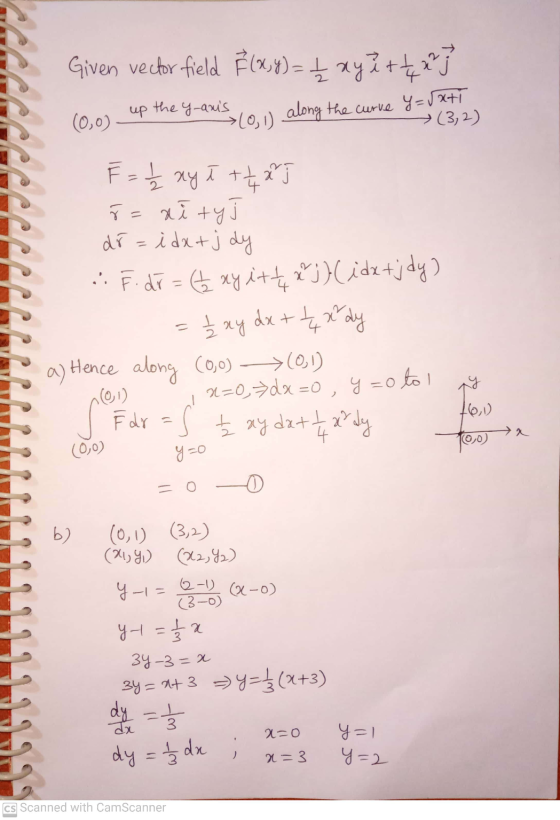 Given vector field F⃗(x,y) = 1/2 xy i⃗ + 1/4 x² j⃗
(0,0) up the y-axis → (0,1) along the curve y=√x+1 → (3,2)
F̄ = 1/2 xy ī + 1/4 x² j̄
r̄ = xī + yj̄
dr̄ = i dx + j dy
∴ F̄·dr̄ = (1/2 xy i + 1/4 x² j)·(idx+jdy)
= 1/2 xy dx + 1/4 x² dy
a) Hence along (0,0) → (0,1)
x=0, ⇒ dx=0, y=0 to 1
∫_(0,0)^(0,1) F̄ dr = ∫_{y=0}^1 1/2 xy dx + 1/4 x² dy
y
(0,1)
(0,0) x
= 0 — ①
b) (0,1) (3,2)
(x₁,y₁) (x₂,y₂)
y-1 = (2-1)/(3-0) (x-0)
y-1 = 1/3 x
3y-3 = x
3y = x+3 ⇒ y = 1/3 (x+3)
dy/dx = 1/3
dy = 1/3 dx ; x=0 y=1
x=3 y=2
CS Scanned with CamScanner